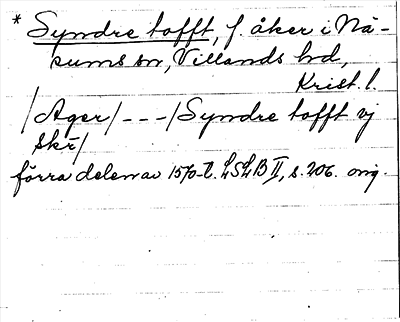 * Syndre tofft, f. åker i Nä-
sums sn, Villands hd,
Krist. l.
/Ager/ - - - /Syndre tofft vj
skr/
förra delen av 1570-t. LSLB II, s. 206. orig.